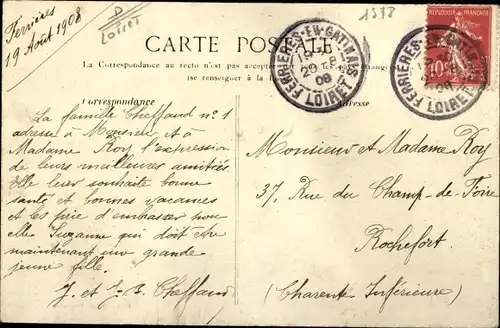 Ferrières
19 Août 1908
Loiret
1578
CARTE POSTALE
La Correspondance au recto n'est pas acceptée
(se renseigner à la
FERRIÈRES-EN-GATINAIS
20 -8
08
LOIRET
FERRIÈRES-EN-GATINAIS
08
LOIRET
RÉPUBLIQUE FRANÇAISE
10c
Correspondance
Adresse
La famille Cheffaud no 1
adresse à Monsieur et à
Madame Roy l'expression
de leurs meilleures amitiés.
Elle leur souhaite bonne
santé et bonnes vacances
et les prie d'embrasser pour
elle Suzanne qui doit être
maintenant une grande
jeune fille.
J. et J.-B. Cheffaud
Monsieur et Madame Roy
37, Rue du Champ-de-Foire
Rochefort
(Charente Inférieure)